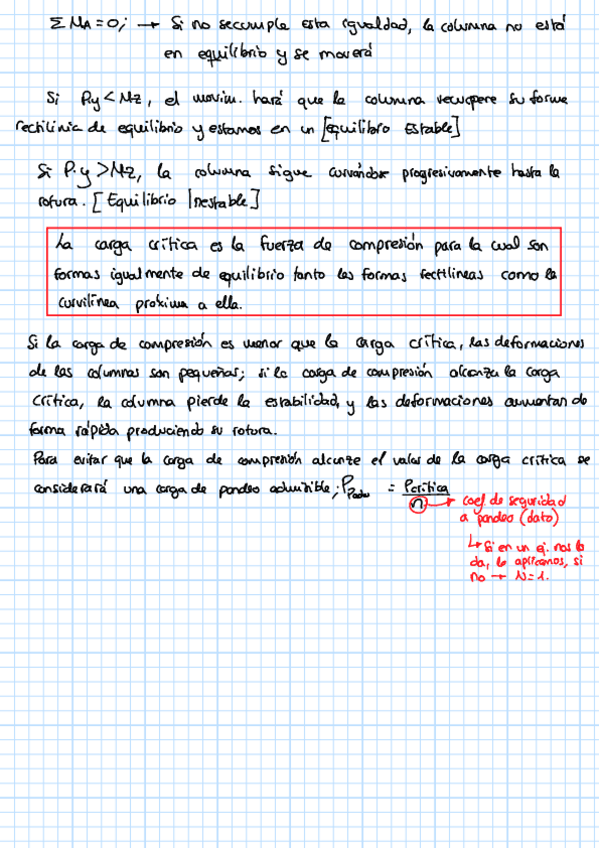 Σ MA = 0; → Si no secumple esta igualdad, la columna no está
en equilibrio y se moverá
Si P.y < Mz, el movim. hará que la columna recupere su forma
rectilinia de equilibrio y estamos en un [equilibro Estable]
Si P.y > Mz, la columna sigue curvándose progresivamente hasta la
rotura. [Equilibrio Inestable]
La carga crítica es la fuerza de compresión para la cual son
formas igualmente de equilibrio tanto las formas rectilíneas como la
curvilínea próxima a ella.
Si la carga de compresión es menor que la carga crítica, las deformaciones
de las columnas son pequeñas; si la carga de compresión alcanza la carga
crítica, la columna pierde la estabilidad, y las deformaciones aumentan de
forma rápida produciendo su rotura.
Para evitar que la carga de compresión alcanze el valor de la carga crítica se
considerará una carga de pandeo admisible; P Padm = Pcrítica / n → coef. de seguridad
a pandeo (dato)
↳ Si en un ej. nos lo
da, lo aplicamos, si
no → N=1.